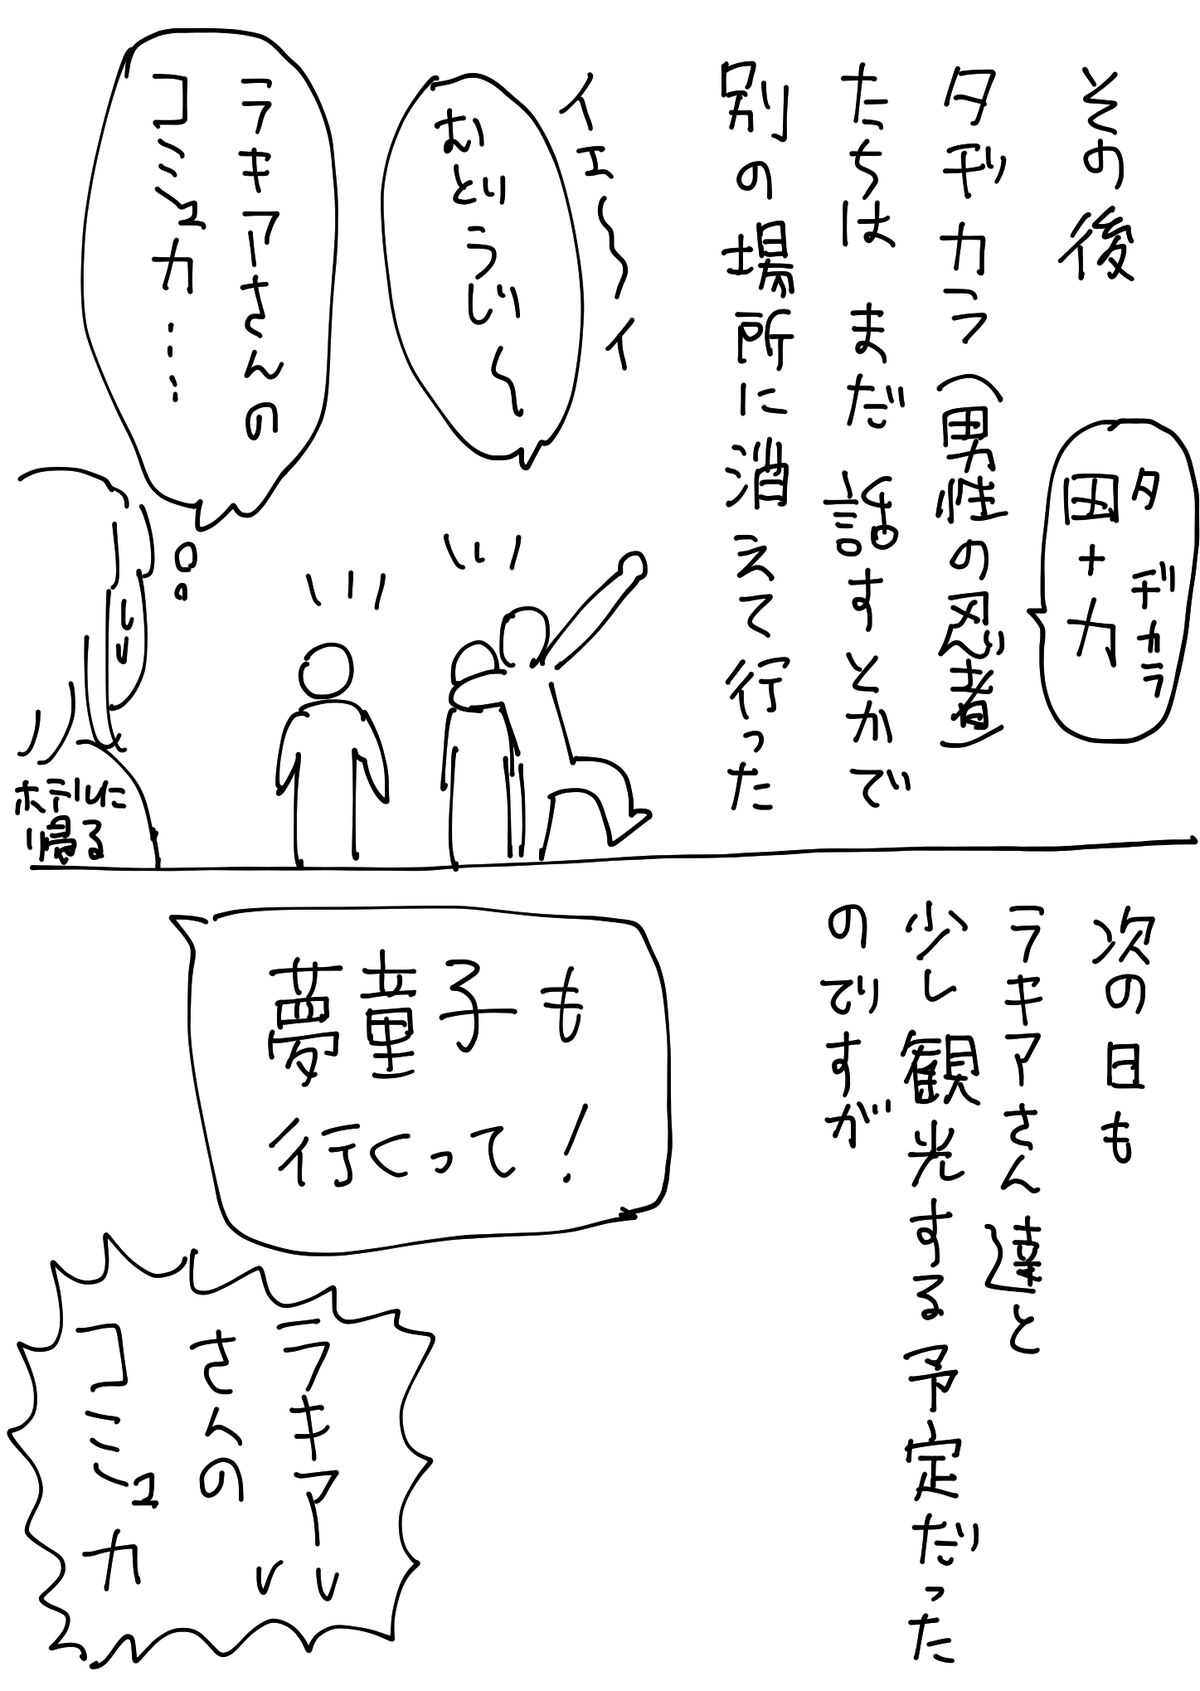 その後
タヂカラ(男性の忍者)
たちは まだ 話すとかで
別の場所に消えて行った
タ ヂカラ
田+力
イエ〜イ
むどうじ〜
ラキアさんの
コミュカ……
ホテルに
帰る
次の日も
ラキアさん達と
少し観光する予定だった
のですが
夢童子も
行くって!
ラキア
さんの
コミュカ